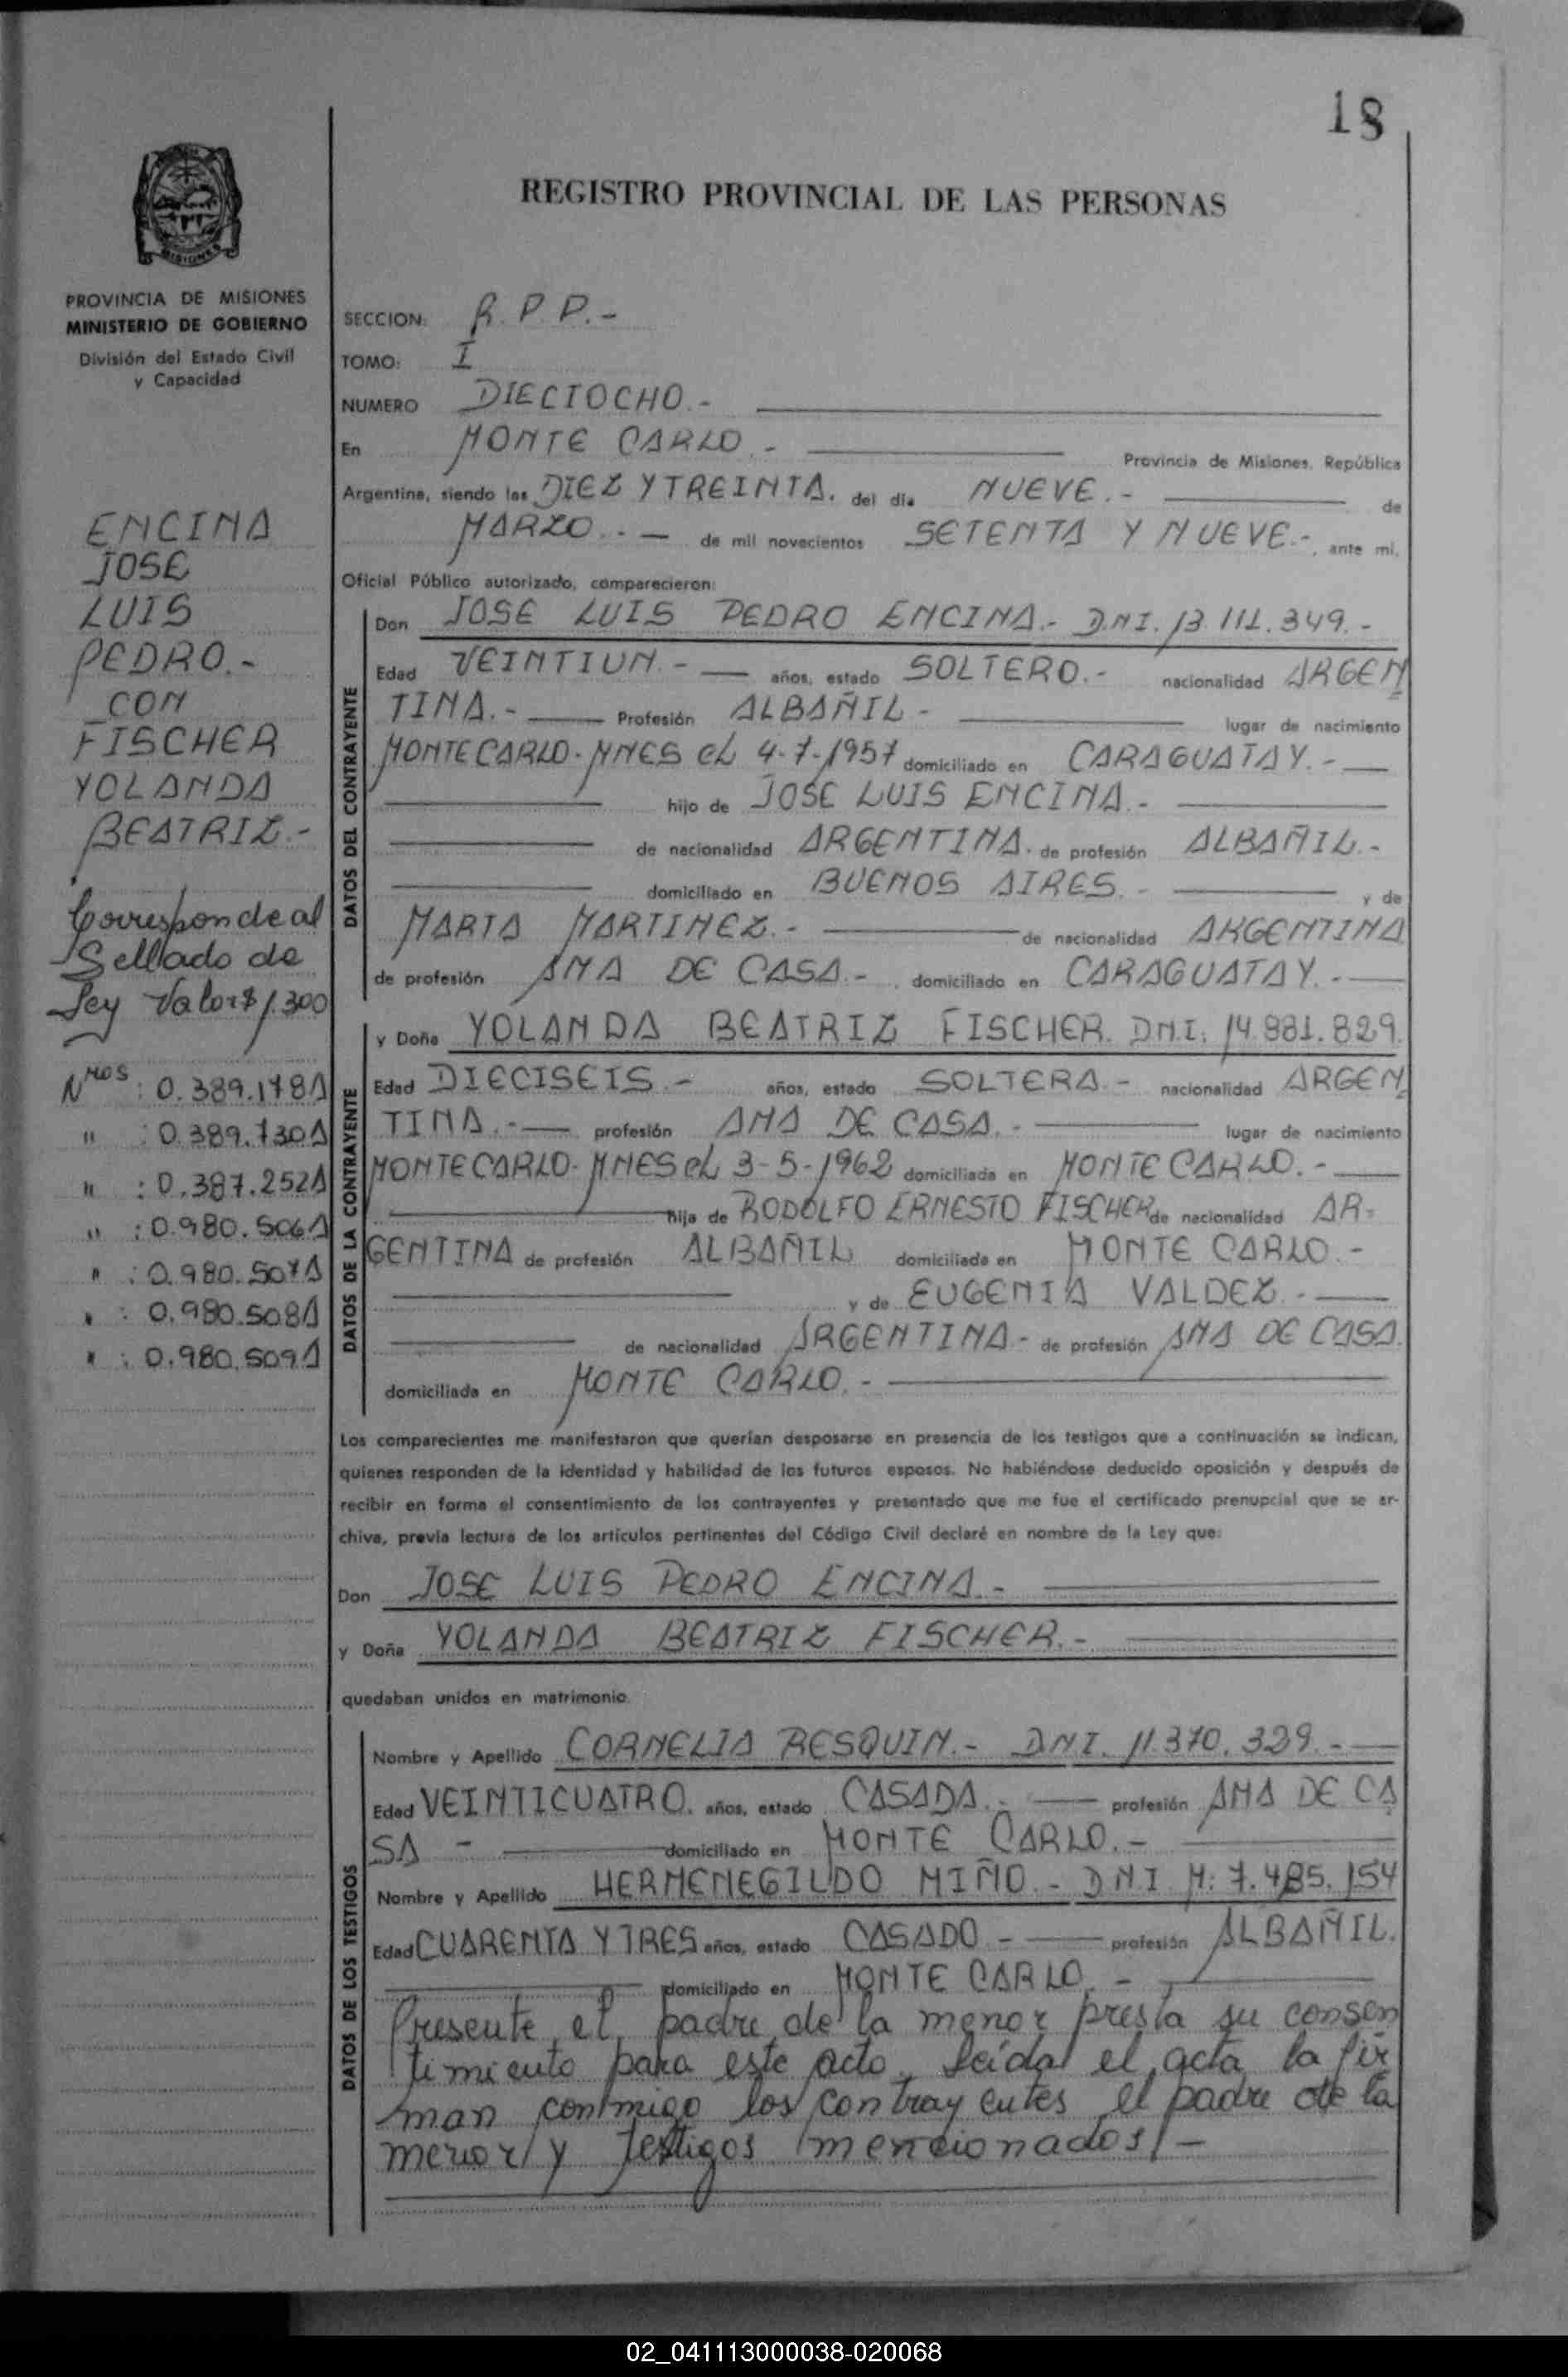 18
REGISTRO PROVINCIAL DE LAS PERSONAS
MISIONES
PROVINCIA DE MISIONES
MINISTERIO DE GOBIERNO
División del Estado Civil
y Capacidad
ENCINA
JOSE
LUIS
PEDRO.-
CON
FISCHER
YOLANDA
BEATRIZ.-
Corresponde al
Sellado de
Ley Valor $ 1.300
Nros : 0.389.178A
" : 0.389.730A
" : 0.387.252A
" : 0.980.506A
" : 0.980.507A
" : 0.980.508A
" : 0.980.509A
SECCION: R.P.P.-
TOMO: I
NUMERO DIECIOCHO.-
En MONTE CARLO.- Provincia de Misiones, República
Argentina, siendo las DIEZ Y TREINTA. del día NUEVE.- de
MARZO.- de mil novecientos SETENTA Y NUEVE.-, ante mi,
Oficial Público autorizado, comparecieron:
DATOS DEL CONTRAYENTE
Don JOSE LUIS PEDRO ENCINA.- D.N.I. 13.111.349.-
Edad VEINTIUN.- años, estado SOLTERO.- nacionalidad ARGEN
TINA.- Profesión ALBAÑIL- lugar de nacimiento
MONTECARLO-MNES el 4-7-1957 domiciliado en CARAGUATAY.-
hijo de JOSE LUIS ENCINA.-
de nacionalidad ARGENTINA. de profesión ALBAÑIL.-
domiciliado en BUENOS AIRES.- y de
MARIA MARTINEZ.- de nacionalidad ARGENTINA
de profesión AMA DE CASA.- domiciliado en CARAGUATAY.-
DATOS DE LA CONTRAYENTE
y Doña YOLANDA BEATRIZ FISCHER. D.N.I: 14.881.829.
Edad DIECISEIS.- años, estado SOLTERA.- nacionalidad ARGEN
TINA.- profesión AMA DE CASA.- lugar de nacimiento
MONTECARLO-MNES el 3-5-1962 domiciliada en MONTE CARLO.-
hija de RODOLFO ERNESTO FISCHER de nacionalidad AR-
GENTINA de profesión ALBAÑIL domiciliado en MONTE CARLO.-
y de EUGENIA VALDEZ.-
de nacionalidad ARGENTINA- de profesión AMA DE CASA.
domiciliada en MONTE CARLO.-
Los comparecientes me manifestaron que querían desposarse en presencia de los testigos que a continuación se indican,
quienes responden de la identidad y habilidad de los futuros esposos. No habiéndose deducido oposición y después de
recibir en forma el consentimiento de los contrayentes y presentado que me fue el certificado prenupcial que se ar-
chiva, previa lectura de los artículos pertinentes del Código Civil declaré en nombre de la Ley que:
Don JOSE LUIS PEDRO ENCINA.-
y Doña YOLANDA BEATRIZ FISCHER.-
quedaban unidos en matrimonio.
DATOS DE LOS TESTIGOS
Nombre y Apellido CORNELIA RESQUIN.- D.N.I. 11.370.329.-
Edad VEINTICUATRO. años, estado CASADA.- profesión AMA DE CA
SA - domiciliado en MONTE CARLO.-
Nombre y Apellido HERMENEGILDO MIÑO.- D.N.I. M: 7.485.154
Edad CUARENTA Y TRES años, estado CASADO.- profesión ALBAÑIL.
domiciliado en MONTE CARLO.-
Presente el padre de la menor presta su consen
timiento para este acto, leída el acta la fir
man conmigo los contrayentes el padre de la
menor y testigos mencionados.-
02_041113000038-020068